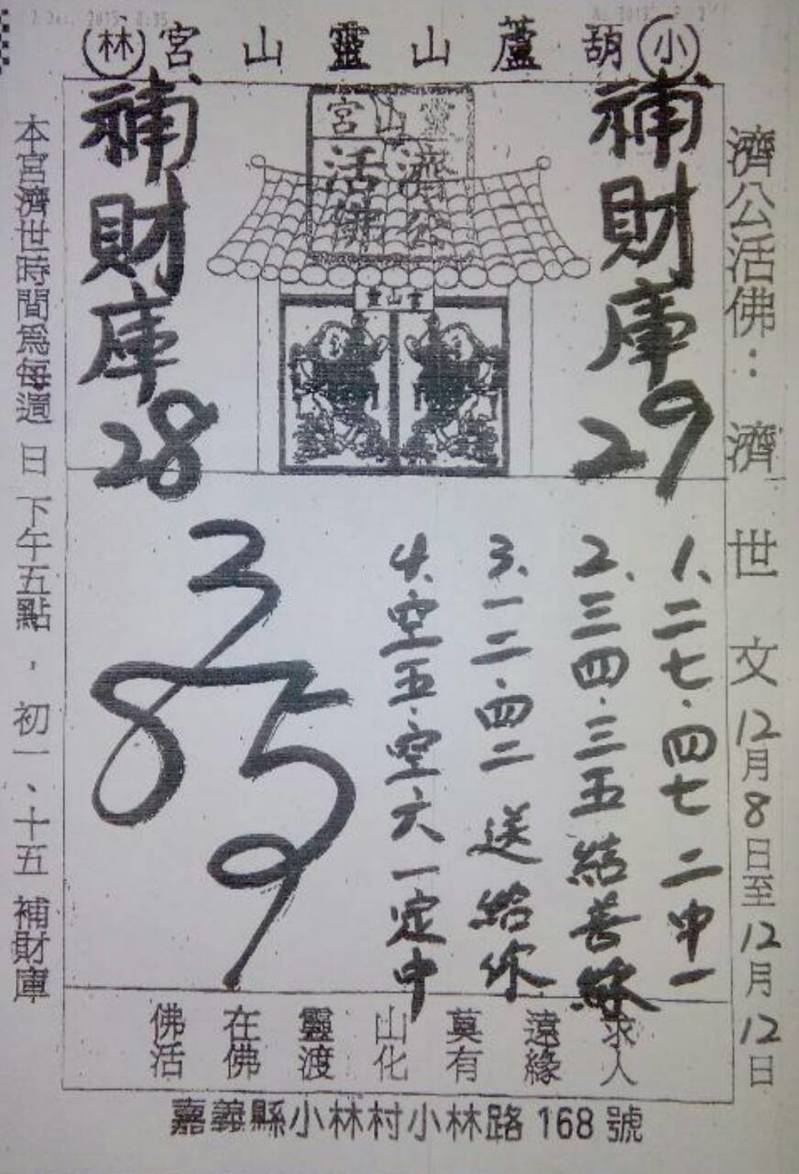 (小)葫蘆山靈山宮(林)
濟公活佛：濟世文12月8日至12月12日
補財庫29
靈山宮
濟公
活佛
補財庫28
1、二七·四七二中一
2、三四·三五結善緣
3、一二·四二送給你
4、空五·空六一定中
3
875
9
佛在靈山莫遠求
活佛渡化有緣人
本宮濟世時間為每週日下午五點，初一、十五補財庫
嘉義縣小林村小林路168號